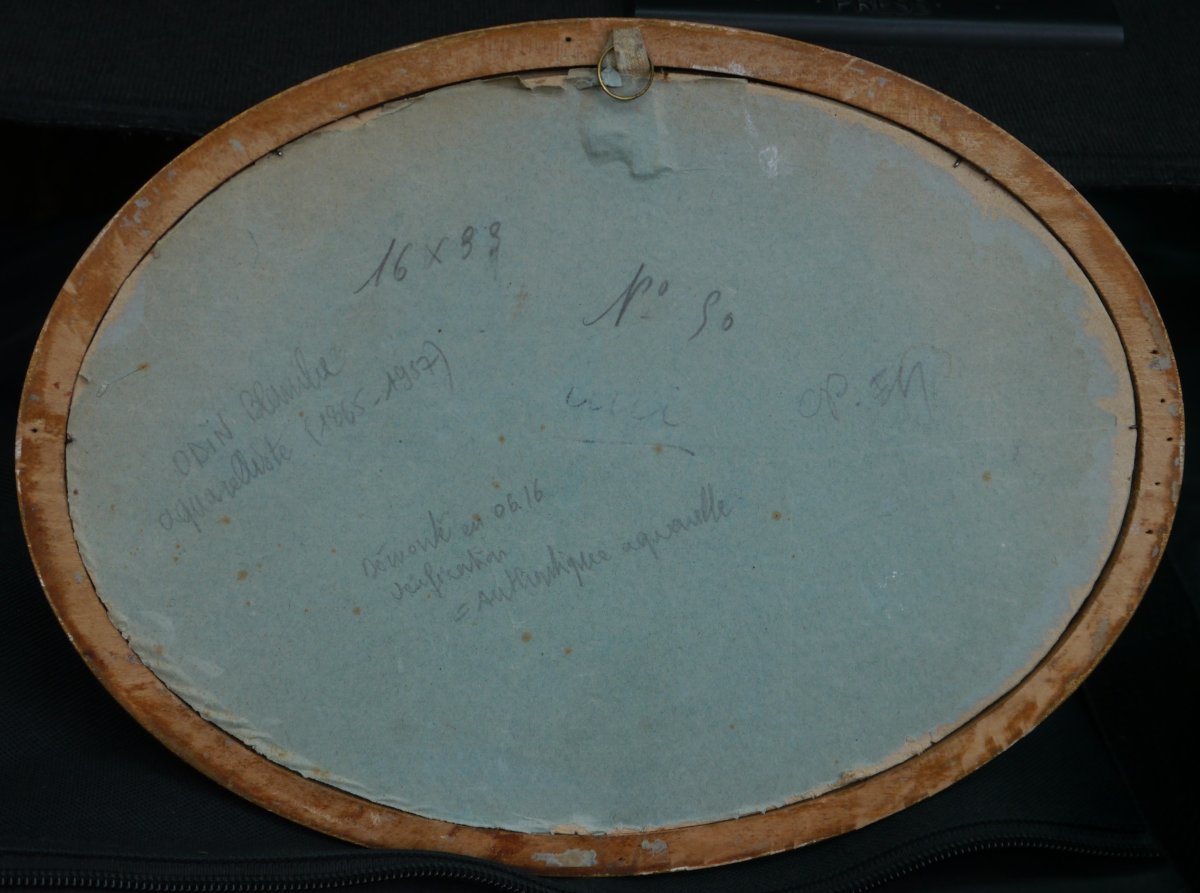 16 x 33
N° 50
op. EH
ODiN Blanche
aquarelliste (1865-1957)
Démonté en 06.16
vérification
= authentique aquarelle